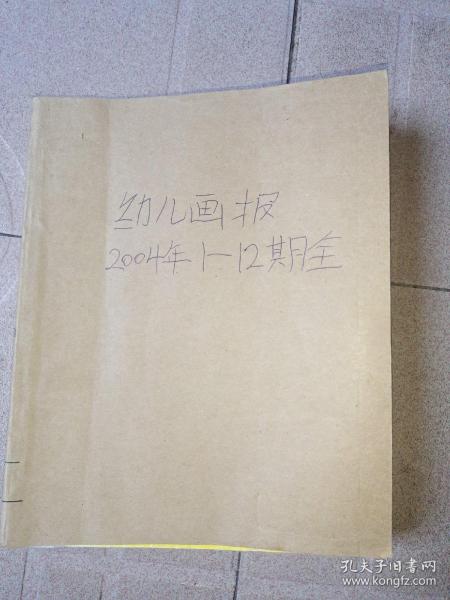 幼儿画报
2004年1-12期全
孔夫子旧书网
www.kongfz.com